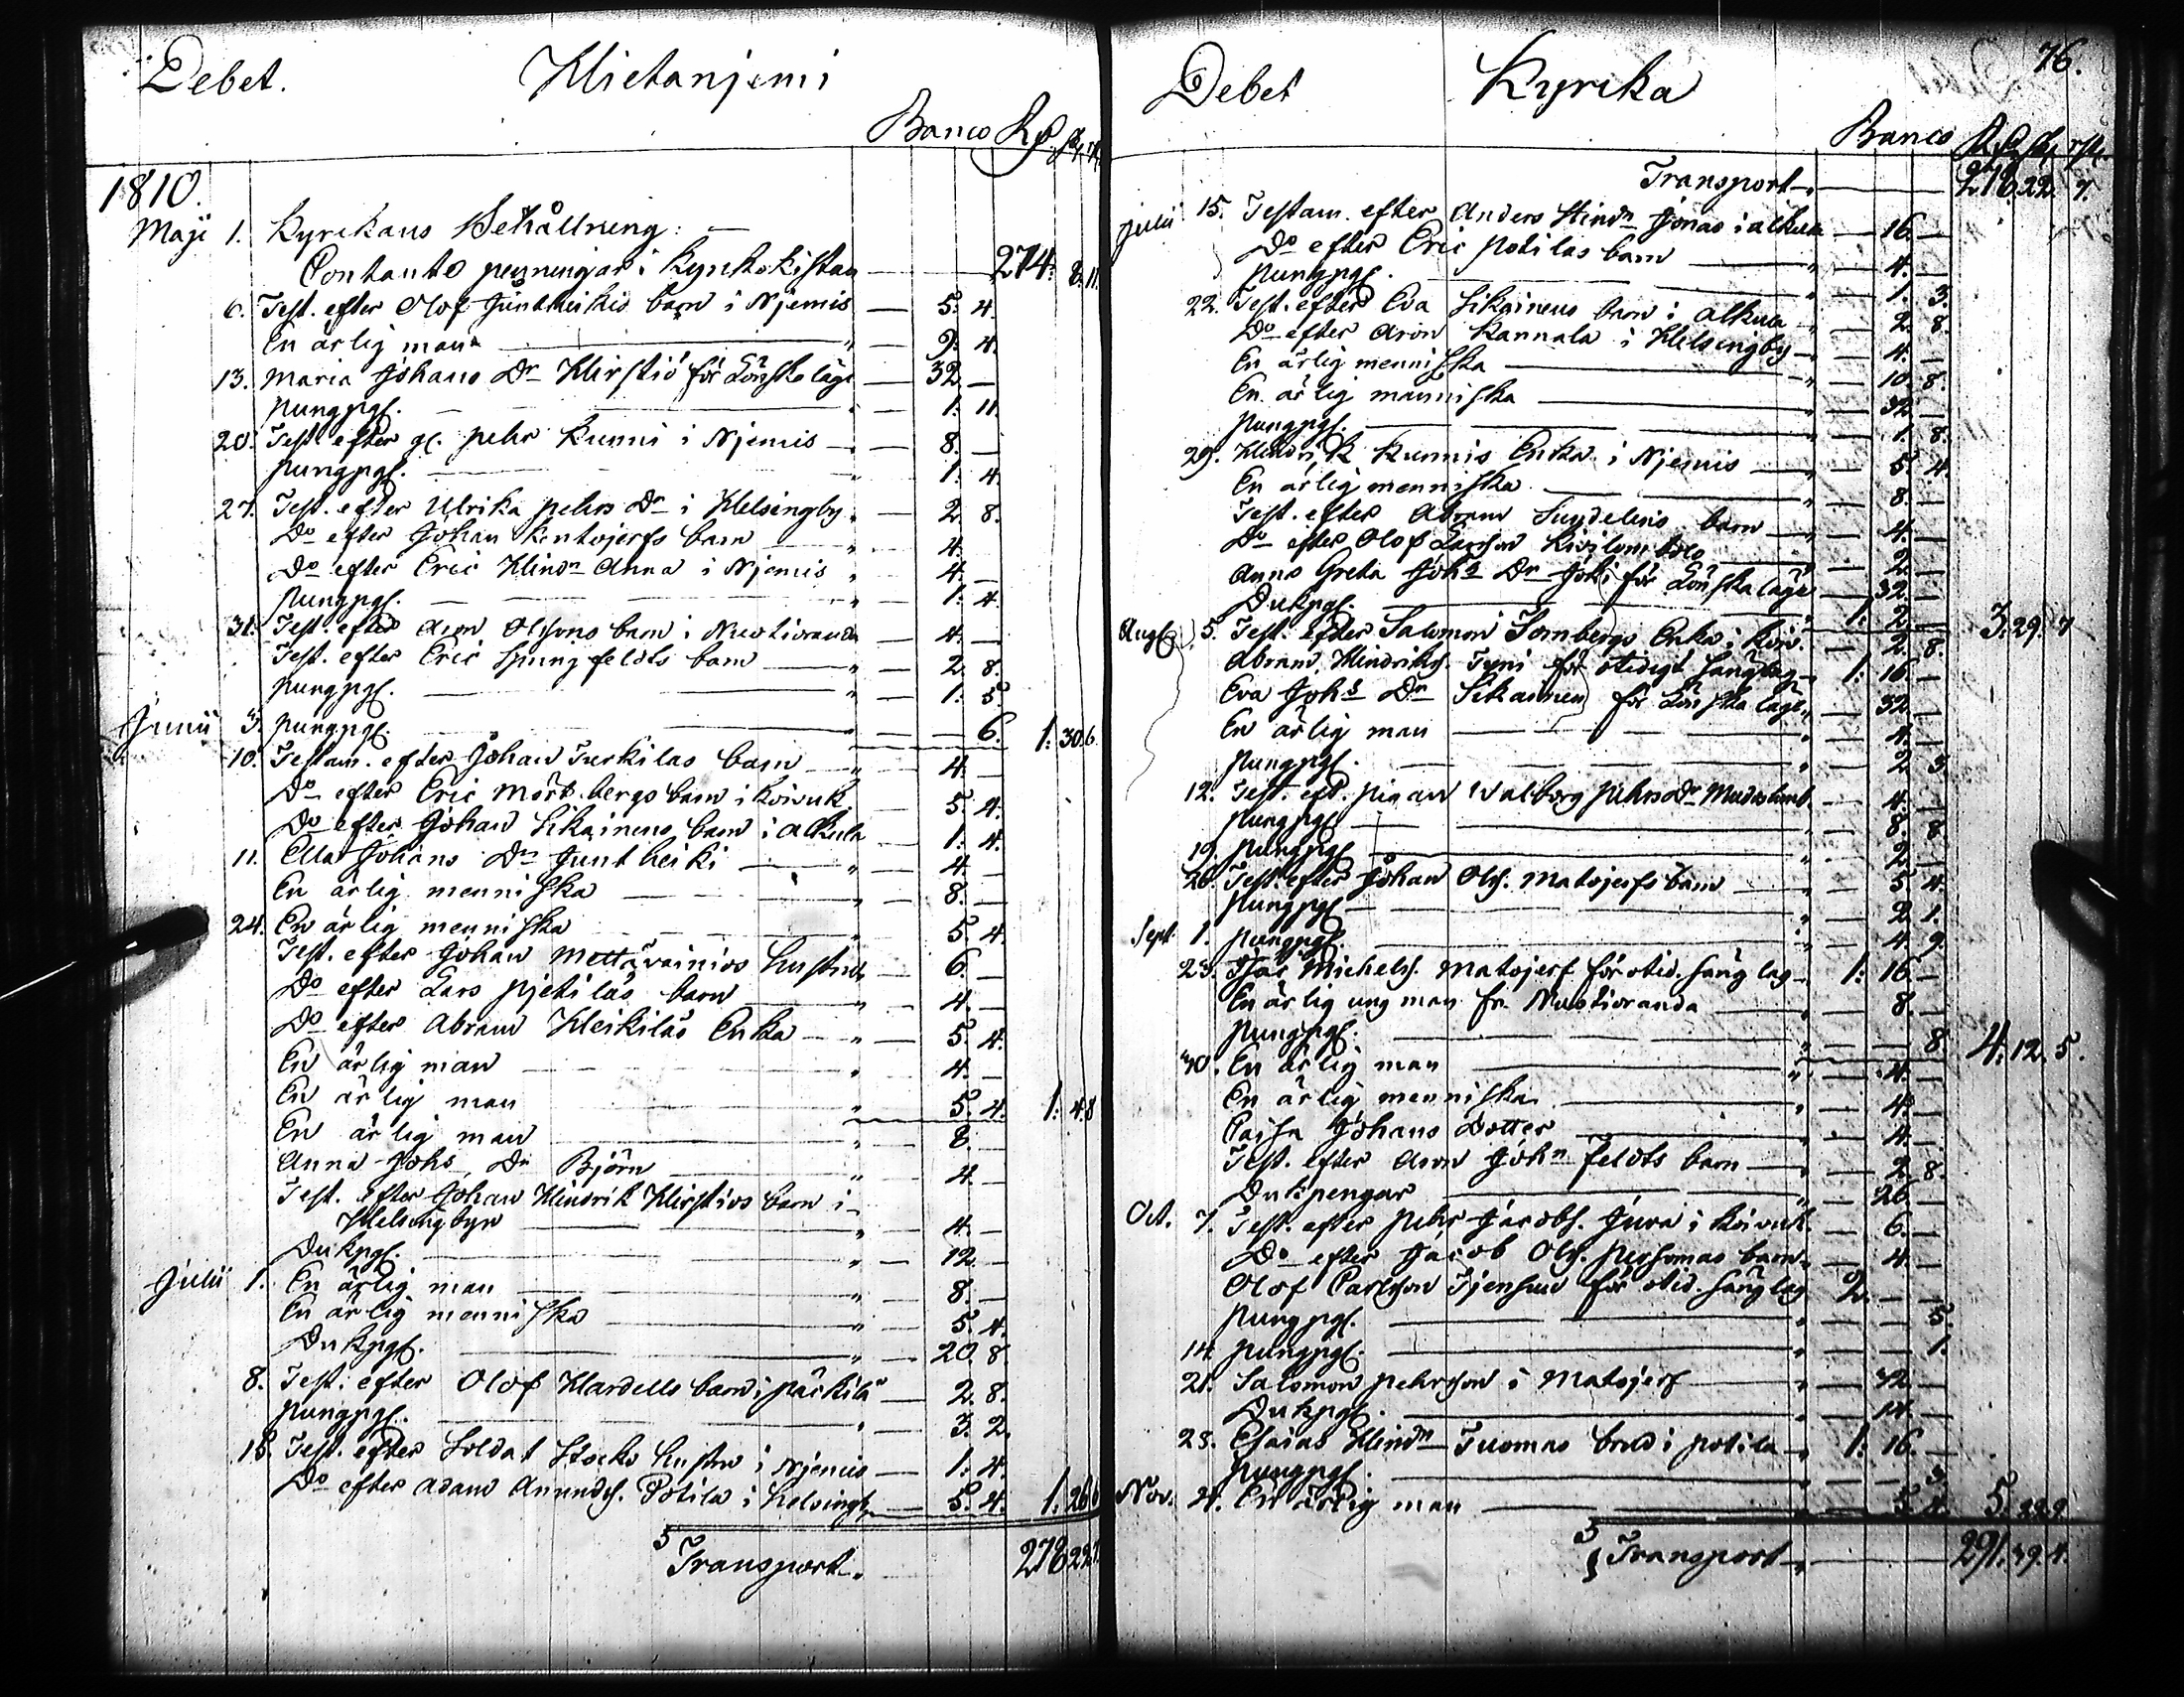 Debet. Hietaniemi
Banco Rd. sk. rst.
1810.
Maji 1. Kyrckans Behållning: —
Contanta penningar i Kyrkokistan — 274. 8. 11.
6. Test. efter Olof Juntheikis barn i Njemis — 5. 4.
En ärlig man — 9. 4.
13. Maria Johans Dr Hirstiö för Lönskaläge — 32. —
pungpgr. — 1. 11.
20. Test. efter gl. pehr Kunni i Njemis — 8. —
pungpgr. — 1. 4.
27. Test. efter Ulrika pehrs Dr i Helsingby — 2. 8.
Do efter Johan Kentojerfs barn — 4. —
Do efter Eric Hindr Anna i Njemis — 4. —
pungpgr. — 1. 4.
31. Test. efter Aron Olssons barn i Nuotioranda — 4. —
Test. efter Eric Springfeldts barn — 2. 8.
pungpgr. — 1. 5.
Junii 3. pungpgr. — 6. 1: 30. 6
10. Testam. efter Johan Turkilas barn — 4. —
Do efter Eric Mörtbergs barn i Koivuk. 5. 4.
Do efter Johan Sikainens barn i Alkula — 1. 4.
11. Ella Johans Dr Juntheiki — 4. —
En ärlig menniska — 8. —
24. En ärlig menniska — 5. 4.
Test. efter Johan Mettävainios hustru — 6. —
Do efter Lars pjetiläs barn — 4. —
Do efter Abram Heikiläs Enka — 5. 4.
En ärlig man — 4. —
En ärlig man — 5. 4. 1: 4. 8
En ärlig man — 8. —
Anna Johs Dr Björn — 4. —
Test. efter Johan Hindrik Hirstiös barn i
Helsingbyn — 4. —
Dukpgr. — 12. —
Julii 1. En ärlig man — 8. —
En ärlig menniska — 5. 4.
Dukpgr. — 20. 8.
8. Test. efter Olof Hardells barn i päckilä — 2. 8.
pungpgr. — 3. 2.
15. Test. efter Soldat Stocks hustru i Njemis — 1. 4.
Do efter Adam Anundss. Potila i helsingb. — 5. 4. 1: 26. 6
Transport — 278 22. 7.
Debet Kyrcka 76.
Banco Rd. sk. rst.
Transport — 278. 22. 7.
Julii 15. Testam. efter Anders Hindr Jonas i alkula 16. —
Do efter Eric potilas barn — 4. —
pungpgr. — 1. 3.
22. Test. efter Eva Sikainens barn i alkula 2. 8.
Do efter Aron Kannala i Helsingby — 4. —
En ärlig menniska — 10. 8.
En ärlig menniska — 32. —
pungpgr. — 1. 8.
29. Hindrik Kunnis Enka i Njemis — 5. 4.
En ärlig menniska — 8. —
Test. efter Abram barn — 4. —
Do efter Olof Larsson Kivilombolo — 2. —
Anna Greta Johs Dr Joki för Lönskaläge — 32. —
Dukpgr. — 1: 2. — 3. 29. 7
Aug. 5. Test. efter Salomon Tornbergs Enka i Koiv. 2. 8.
Abram Hindrikss. Tyni för otidigt sänglag — 1: 16. —
Eva Johs Dr Sikainen för Lönskaläge — 32. —
En ärlig man — 4. —
pungpgr. — 2. 3
12. Test. eft. pigan Walborg pehrs Dr — 4. —
pungpgr. — 8. 8.
19. pungpgr. — 2. —
26. Test. efter Johan Olss. Matojerfs barn — 5. 4.
pungpgr. — 2. 1.
Sept. 1. pungpgr. — 4. 9.
23. Isac Michelss. Matojerf för otid. sänglag — 1: 16. —
En ärlig ung man fr. Nuotioranda — 8. —
pungpgr. — 8. 4: 12. 5.
30. En ärlig man — 4. —
En ärlig menniska — 4. —
Caisa Johans Dotter — 4. —
Test. efter Aron Johan felots barn — 2. 8.
Dukpengar — 26. —
Oct. 7. Test. efter pehr Jacobs. Juva i Koivuk. 6. —
Do efter Jacob Olss. barn — 4. —
Olof Carlsson för otid. sänglag 2. — —
pungpgr. — 5.
14. pungpgr. — 1.
21. Salomon pehrsson i Matojerf — 32. —
Dukpgr. — 14. —
28. Esaias Hindr Tuomas brud i potila — 1: 16. —
pungpgr. — 3.
Nov. 4. En ärlig man — 5. 4. 5. 22. 9
Transport — 291. 39. 4.